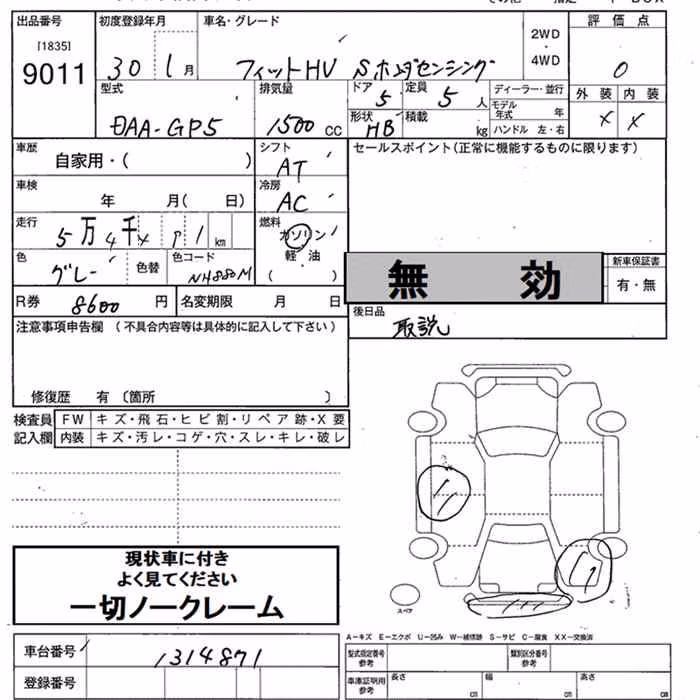 出品番号 初度登録年月 車名・グレード 評価点
[1835] 2WD
9011 30 1月 フィットHV Sホンダセンシング 4WD 0
型式 排気量 ドア 5 定員 5人 ディーラー・並行 外装 内装
DAA-GP5 1500cc 形状 HB 積載 kg モデル年式 年 X X
ハンドル 左・右
車歴 シフト セールスポイント(正常に機能するものに限ります)
自家用・( ) AT
車検 冷房
年 月( 日) AC
走行 燃料
5万4千 km ガソリン
軽・油
( )
色 色替 色コード
グレー NH880M
無 効 新車保証書
有・無
R券 8600円 名変期限 月 日 後日品
取説
注意事項申告欄 (不具合内容等は具体的に記入して下さい)
修復歴 有 〔箇所 〕
検査員 FW キズ・飛石・ヒビ割・リペア跡・X要
記入欄 内装 キズ・汚レ・コゲ・穴・スレ・キレ・破レ
現状車に付き
よく見てください
一切ノークレーム
スペア
A-キズ E-エクボ U-凹み W-補修跡 S-サビ C-腐食 XX-交換済
車台番号 1314871 型式指定番号 参考 類別区分番号 参考
登録番号 車庫証明用 参考 長さ cm 幅 cm 高さ cm